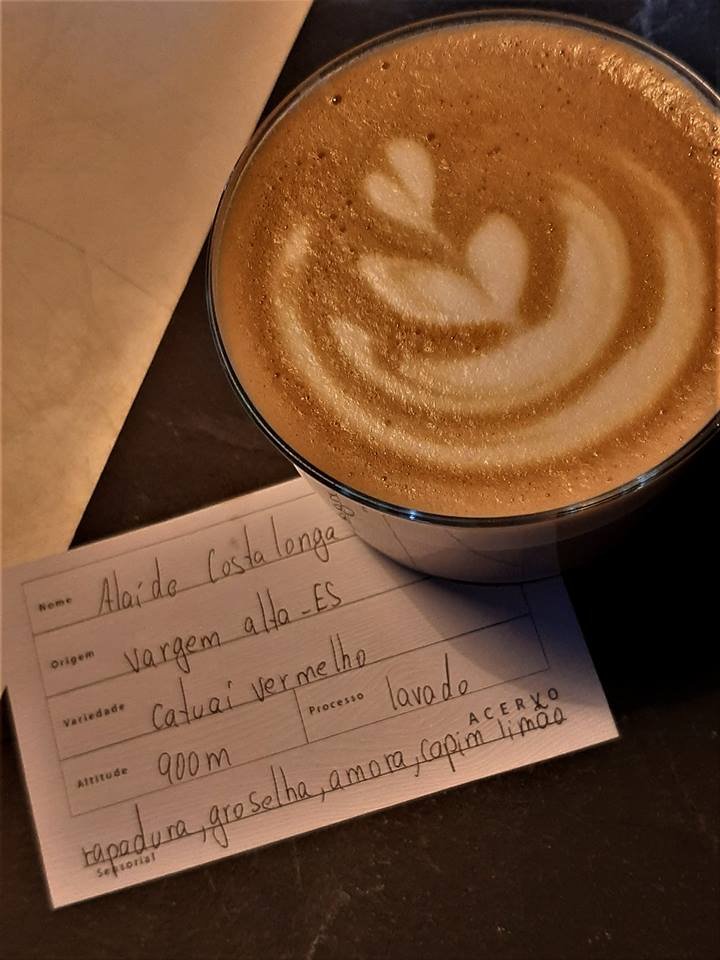 Nome Alaíde Costalonga
Origem vargem alta-ES
Variedade catuaí vermelho
Altitude 900m Processo lavado
ACERVO
rapadura, groselha, amora, capim limão
Sensorial